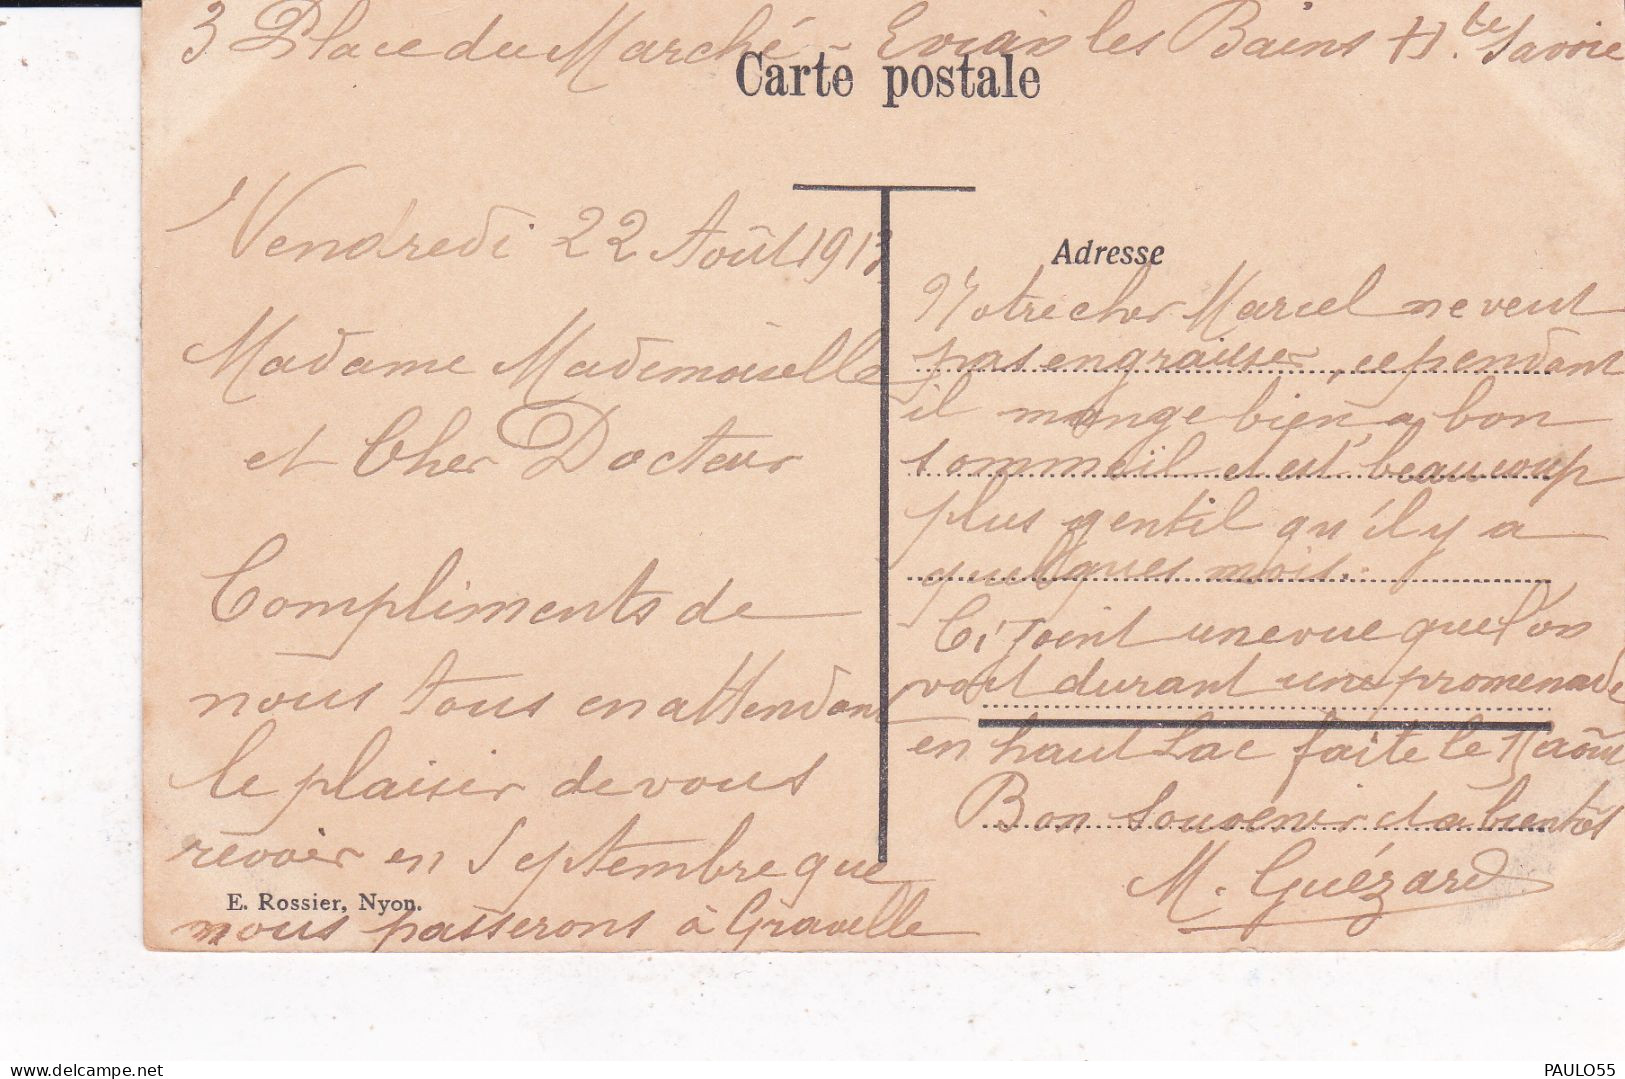 3 Place du Marché - Evian les Bains Hte Savoie
Carte postale
Vendredi 22 Août 1913
Madame Mademoiselle
et Cher Docteur
Compliments de
nous tous en attendant
le plaisir de vous
revoir en Septembre que
nous passerons à Gravelle
E. Rossier, Nyon.
Adresse
Notre cher Marcel ne veut
pas engraisser, cependant
il mange bien, a bon
sommeil et est beaucoup
plus gentil qu'il y a
quelques mois.
Ci joint une vue que l'on
voit durant une promenade
en haut Lac faite le 15 août
Bon Souvenir et a bientôt
M. Guézard
delcampe.net
PAULO55